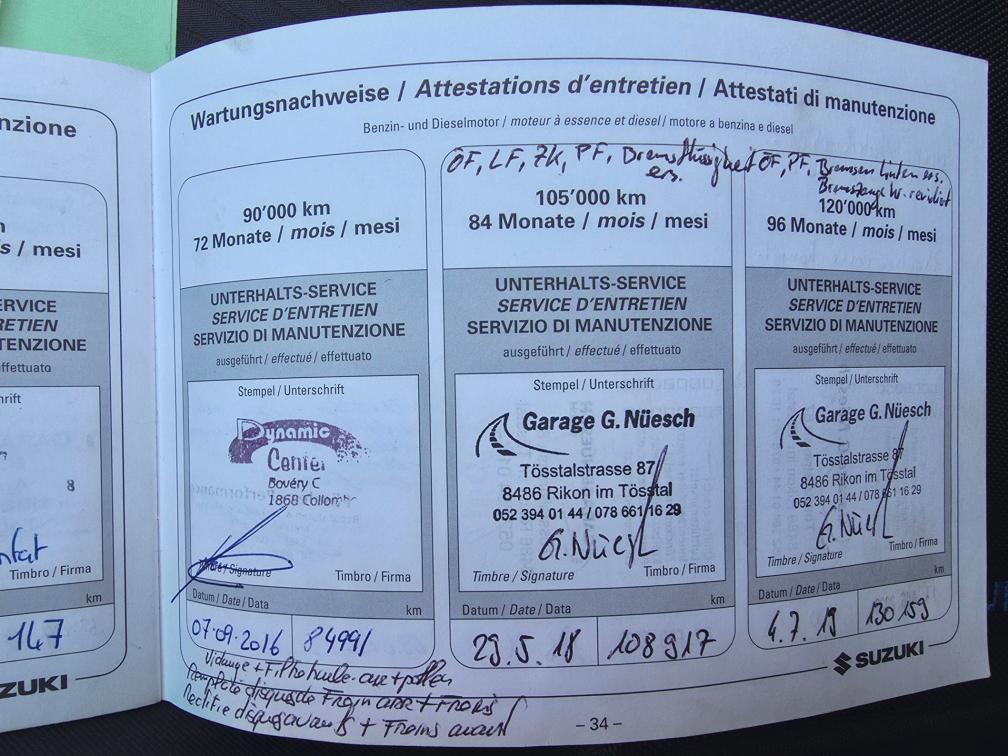 nzione
is / mesi
ERVICE
RETIEN
TENZIONE
ffettuato
hrift
8
Timbro / Firma
km
147
ZUKI
Wartungsnachweise / Attestations d'entretien / Attestati di manutenzione
Benzin- und Dieselmotor / moteur à essence et diesel / motore a benzina e diesel
90'000 km
72 Monate / mois / mesi
UNTERHALTS-SERVICE
SERVICE D'ENTRETIEN
SERVIZIO DI MANUTENZIONE
ausgeführt / effectué / effettuato
Stempel / Unterschrift
Dynamic
Center
Bovéry C
1868 Collom
Timbre / Signature
Timbro / Firma
Datum / Date / Data
km
07.09.2016
84991
Vidange + Filtre huile-air + pollen
Remplacé disques de Frein arr + Freins
Rectifié disques avants + Freins avant
ÖF, LF, ZK, PF, Bremsflüssigkeit
ers.
105'000 km
84 Monate / mois / mesi
UNTERHALTS-SERVICE
SERVICE D'ENTRETIEN
SERVIZIO DI MANUTENZIONE
ausgeführt / effectué / effettuato
Stempel / Unterschrift
Garage G. Nüesch
Tösstalstrasse 87
8486 Rikon im Tösstal
052 394 01 44 / 078 661 16 29
G. Nüesch
Timbre / Signature
Timbro / Firma
Datum / Date / Data
km
29.5.18
108917
ÖF, PF, Bremsen hinten ers.
revidiert
120'000 km
96 Monate / mois / mesi
UNTERHALTS-SERVICE
SERVICE D'ENTRETIEN
SERVIZIO DI MANUTENZIONE
ausgeführt / effectué / effettuato
Stempel / Unterschrift
Garage G. Nüesch
Tösstalstrasse 87
8486 Rikon im Tösstal
052 394 01 44 / 078 661 16 29
G. Nüesch
Timbre / Signature
Timbro / Firma
Datum / Date / Data
km
4.7.19
130159
SUZUKI
– 34 –